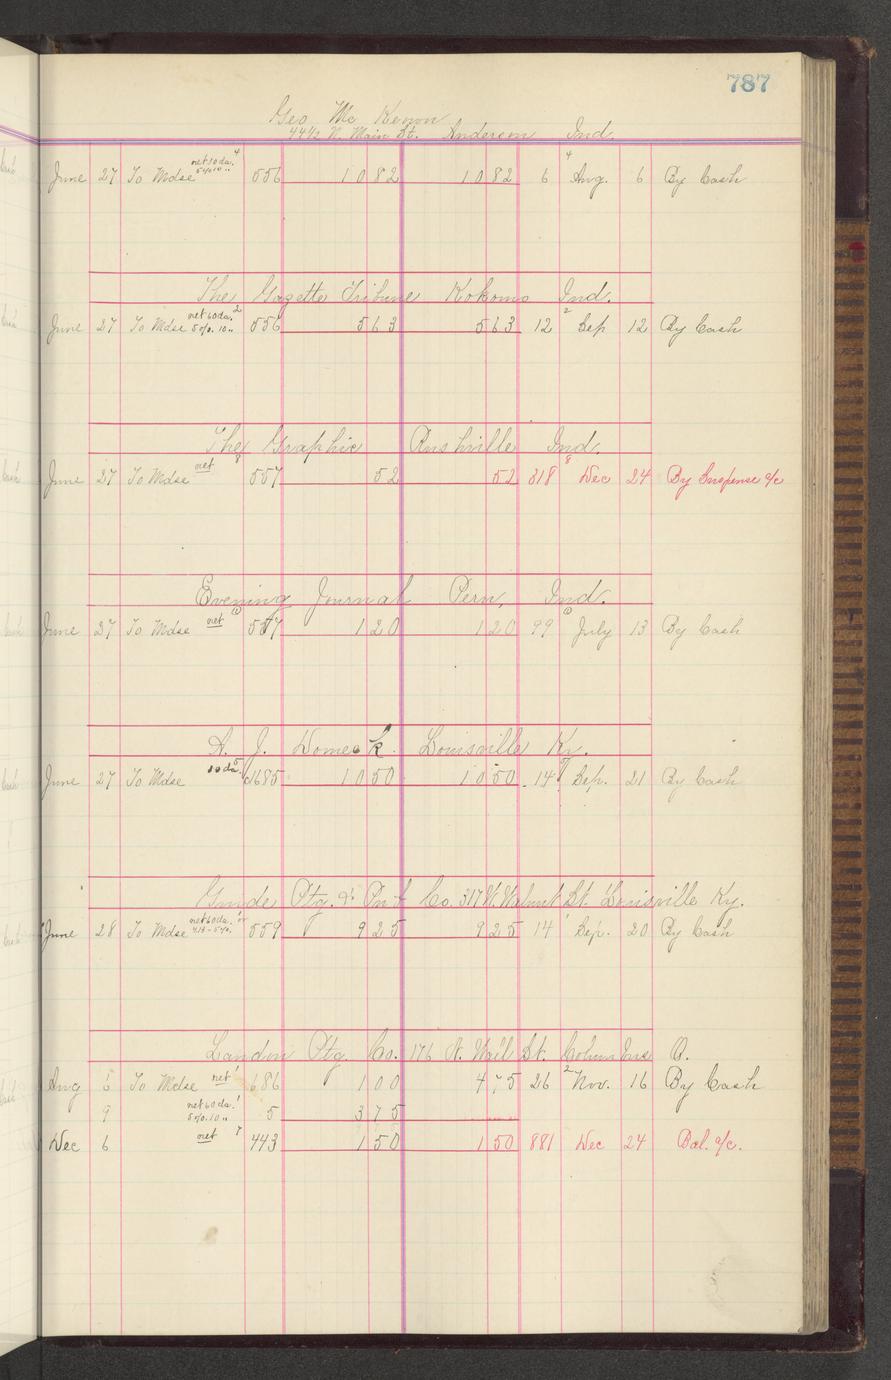 787
Geo Mc Keown
44½ N. Main St. Anderson Ind.
June 27 To Mdse net 10 da. 4 556 10 82 10 82 6 4 Aug. 6 By Cash
The Gazette Tribune Kokomo Ind.
June 27 To Mdse net 60 da. 2 5% 10 " 556 5 63 5 63 12 2 Sep 12 By Cash
The Graphic Rushville Ind.
June 27 To Mdse net 8 557 52 52 318 8 Dec 24 By Suspense a/c
Evening Journal Peru, Ind.
June 27 To Mdse net 557 1 20 1 20 99 July 13 By Cash
A. J. Ky.
Louisville
June 27 To Mdse 5 c1685 10 50 10 50 14 Sep. 21 By Cash
Gmde Ptg. & Co. 317 W. Walnut St. Louisville Ky.
June 28 To Mdse net 60 da. 559 9 25 9 25 14 Sep. 20 By Cash
Landon Ptg. Co. 176 N. St. Columbus O.
Aug 6 To Mdse net 1 686 1 00 4 75 26 2 Nov. 16 By Cash
9 net 60 da. 5% 10 " 5 3 75
Dec 6 net 7 443 1 50 1 50 881 Dec 24 Bal. a/c.